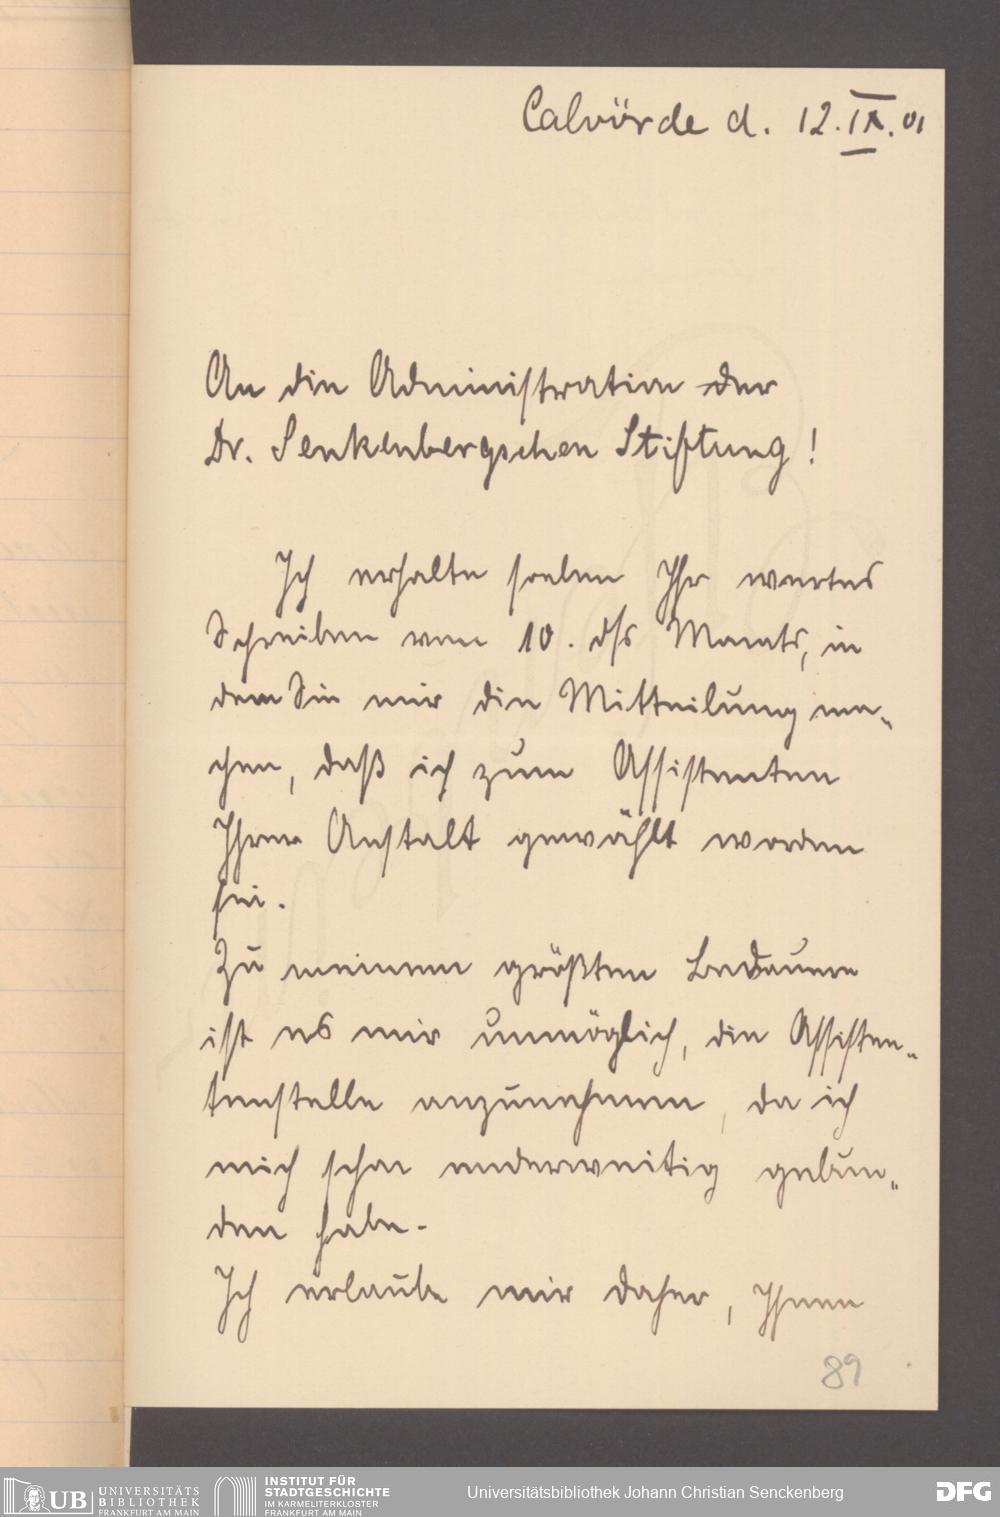 Calvörde d. 12. IX. 01
An die Administration der
Dr. Senkenbergschen Stiftung!
Ich erhalte soeben Ihr wertes
Schreiben vom 10. dss Monats, in
dem Sie mir die Mitteilung ma-
chen, daß ich zum Assistenten
Ihrer Anstalt gewählt worden
sei.
Zu meinem größten Bedauern
ist es mir unmöglich, die Assisten-
tenstelle anzunehmen, da ich
mich schon anderweitig gebun-
den habe.
Ich erlaube mir daher, Ihnen
89
UB UNIVERSITÄTS
BIBLIOTHEK
FRANKFURT AM MAIN
INSTITUT FÜR
STADTGESCHICHTE
IM KARMELITERKLOSTER
FRANKFURT AM MAIN
Universitätsbibliothek Johann Christian Senckenberg
DFG